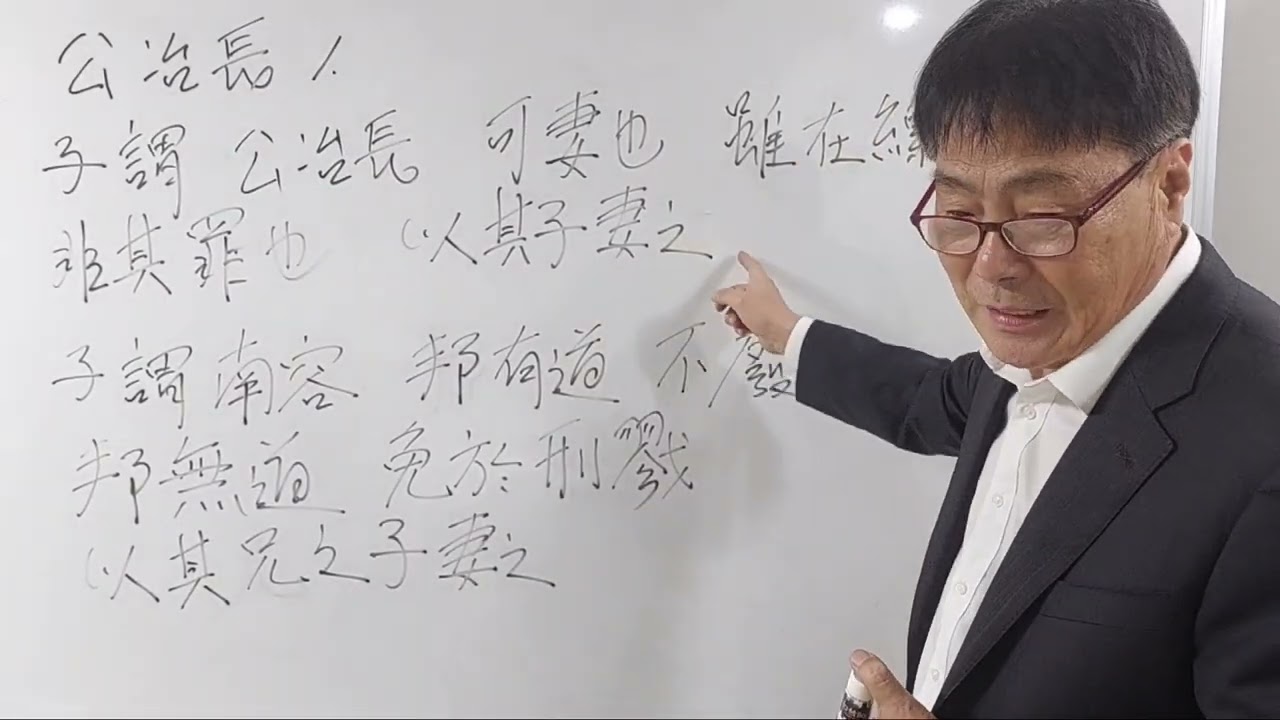 公冶長 1.
子謂 公冶長 可妻也 雖在縲
非其罪也 以其子妻之
子謂南容 邦有道 不廢
邦無道 免於刑戮
以其兄之子妻之